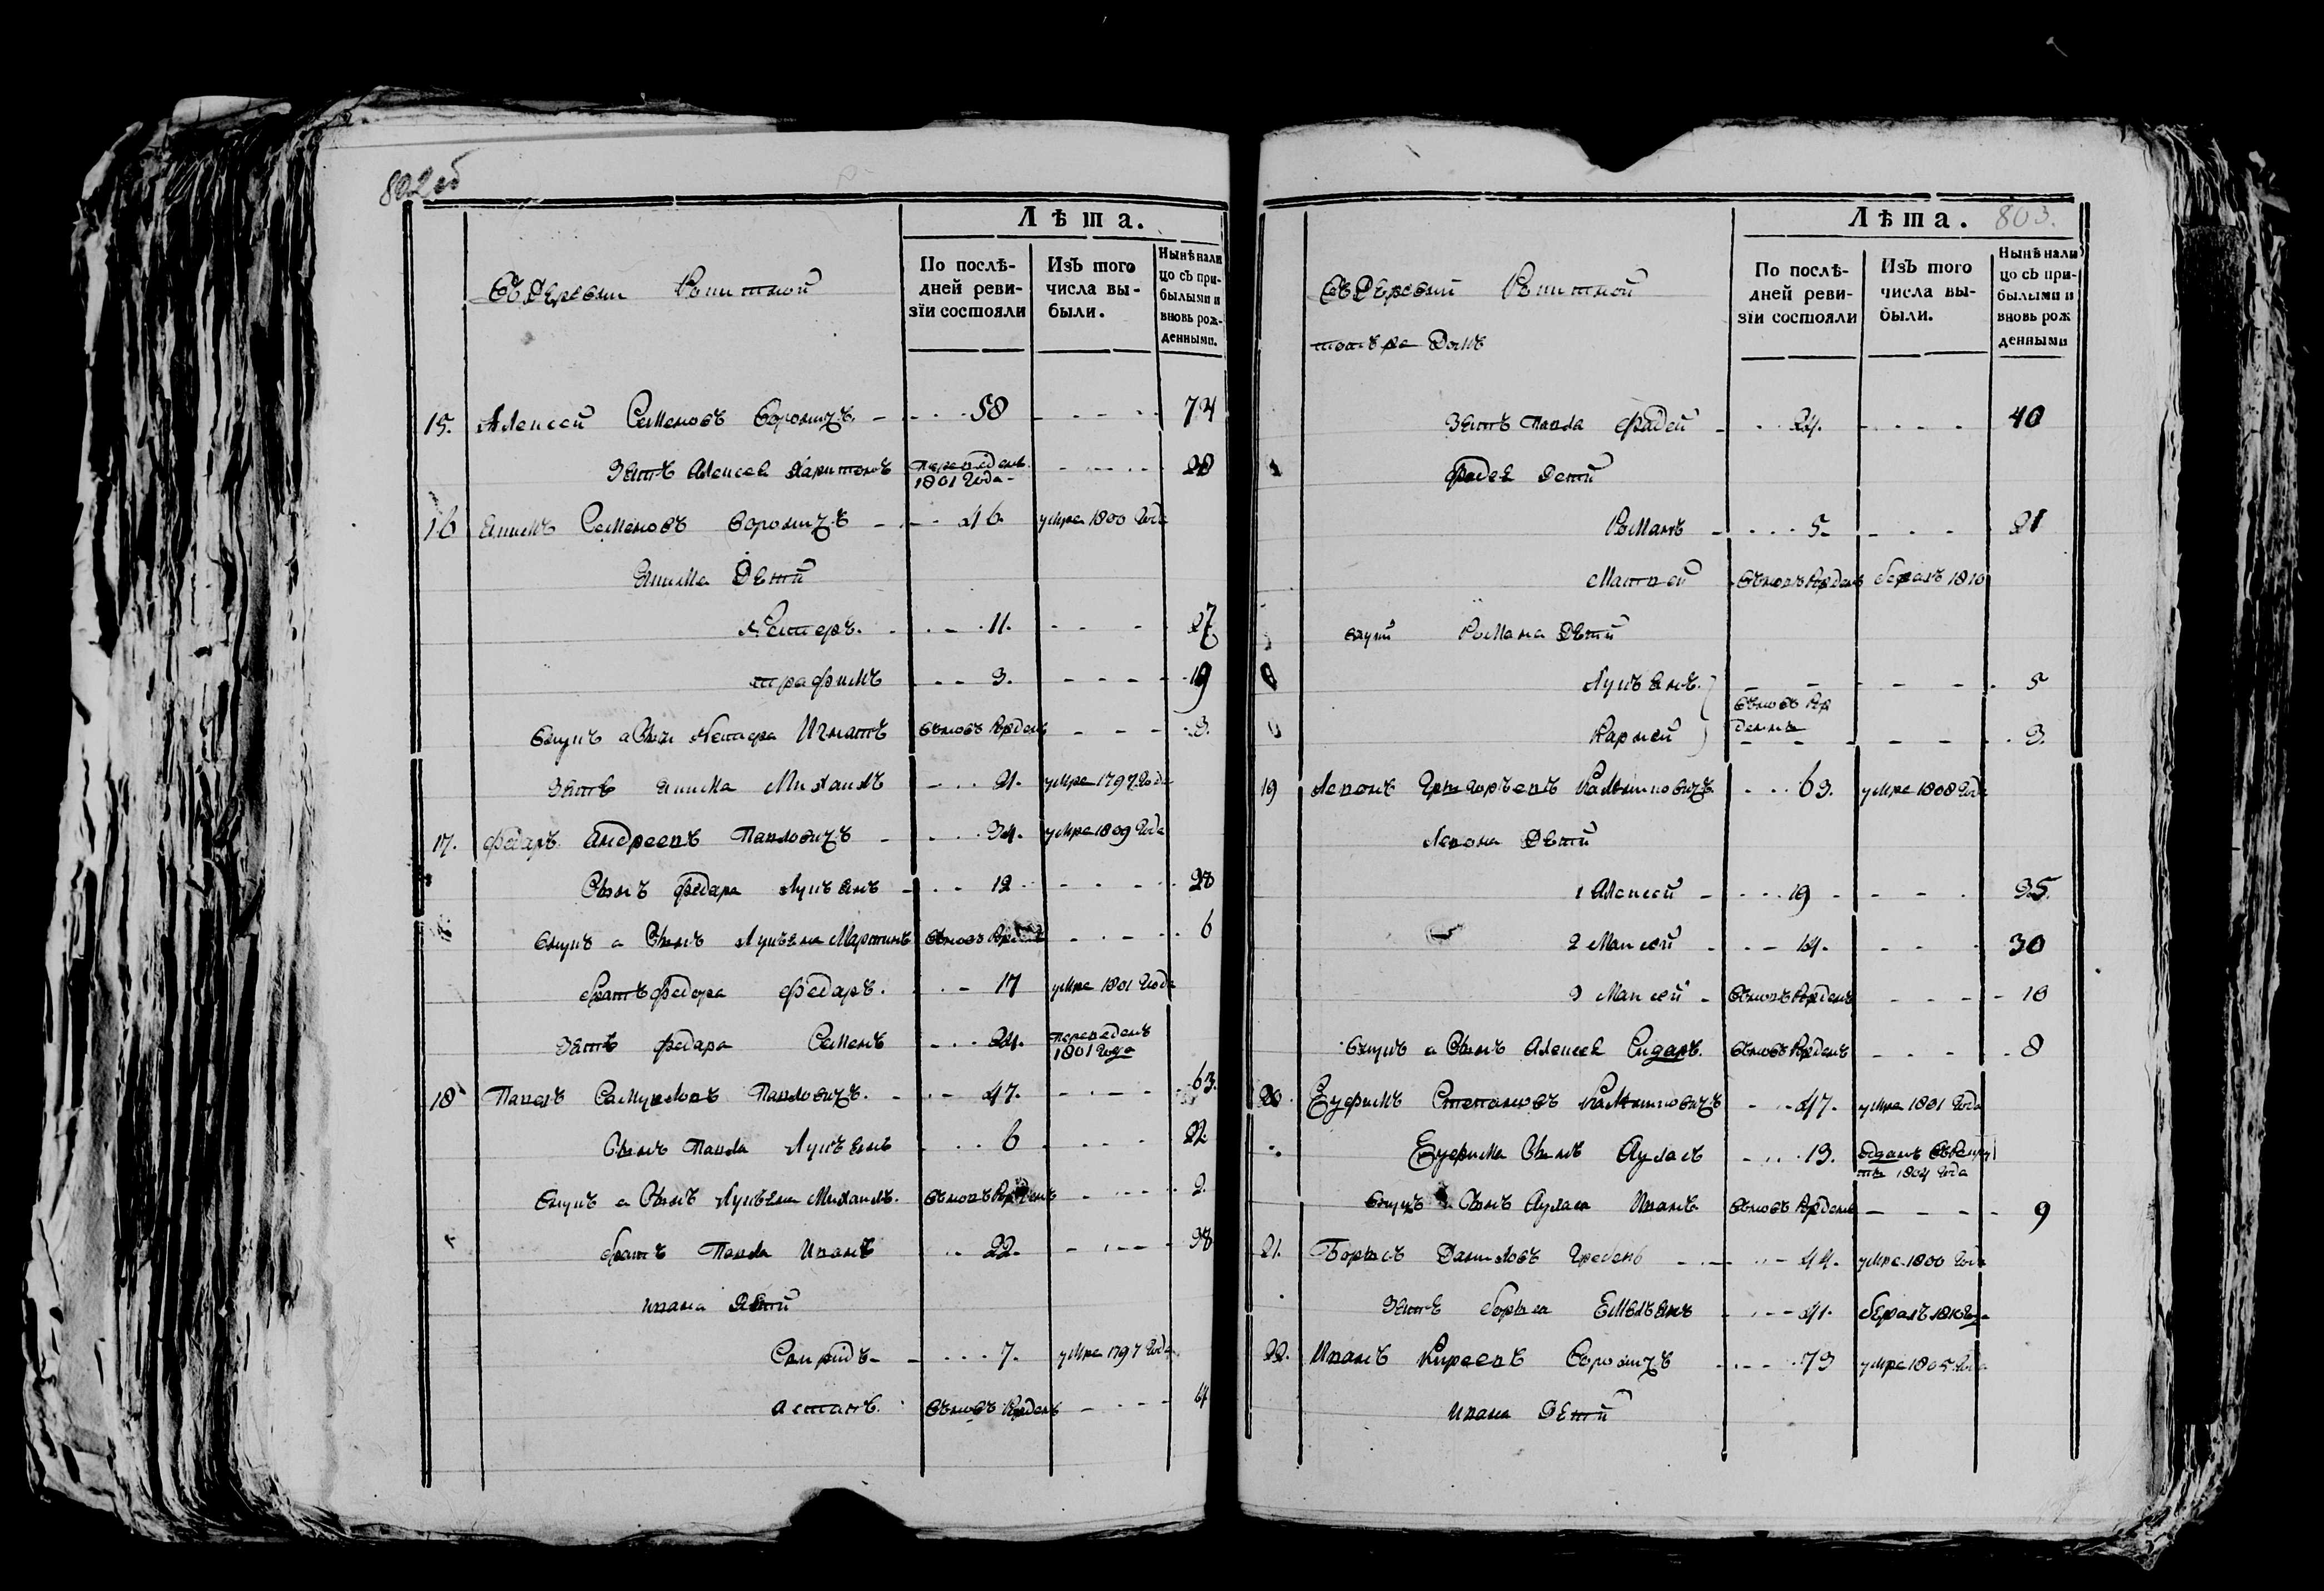 802 об
Лѣта.
Въ Деревни Ракитной
По послѣ-
дней реви-
зіи состояли
Изъ того
числа вы-
были.
Нынѣ нали
цо съ при-
былыми и
вновь рож-
денными.
15. Алексей Семеновъ Сорочичъ. 58 74
Зять Алексея Харитонъ Переведенъ 1801 Года 28
16 Якимъ Семеновъ Сорочичъ 46. умре 1800 Года
Якима Дети
Нестеръ. 11. 27
трафимъ 3. 19
внукъ а сынъ Нестера Игнатъ вновь Рожденъ 3.
Зять Якима Михаилъ 21. умре 1797 Года
17. Федаръ Андреевъ Павловичъ 34. умре 1809 Года
Сынъ Федара Лукъянъ 12 28
внукъ а Сынъ Лукъяна Мартинъ вновь Рожденъ 6
братъ Федора Федаръ. 17 умре 1801 Года
Зять Федара Семенъ 24. переведенъ 1801 Года
18 Павелъ Самуйловъ Павловичъ. 47. 63.
Сынъ Павла Лукъянъ 6 22
внукъ а Сынъ Лукъяна Михаилъ. вновь Рожденъ 2.
братъ Павла Иванъ 22. 38
Ивана Дети
Свиридъ 7. умре 1797 Года
астапъ. вновь Рожденъ 4
803.
Лѣта.
Въ Деревни Ракитной
По послѣ-
дней реви-
зіи состояли
Изъ того
числа вы-
были.
Нынѣ нали
цо съ при-
былыми и
вновь рож
денными
Зять Павла Фадей 24. 40
Фадея Дети
Романъ 5. 21
Матвей вновь Рожденъ 1810
внуки Романа Дети
Лукъянъ. 5
вновь Рож
денны
Карней 3.
19 Левонъ Григорьевъ 63. умре 1808 Года
Левона Дети
1 Алексей 19 35.
2 Маисей 14. 30
3 Маисей вновь Рожденъ 10
внукъ а Сынъ Алексея Сидаръ. вновь Рожденъ 8
20 Еуфимъ Степановъ 47. умре 1801 Года
Еуфима Сынъ Ауласъ 13. отданъ въ Рекру
ты 1804 Года
внукъ Сынъ Ауласа Иванъ вновь Рожденъ 9
21. Борысъ Даниловъ Гребень 44. умре 1800 Года
Зять Борыса Емельянъ 41.
22. Иванъ Киреевъ Сорочичъ 73 умре 1805 Года
Ивана Дети